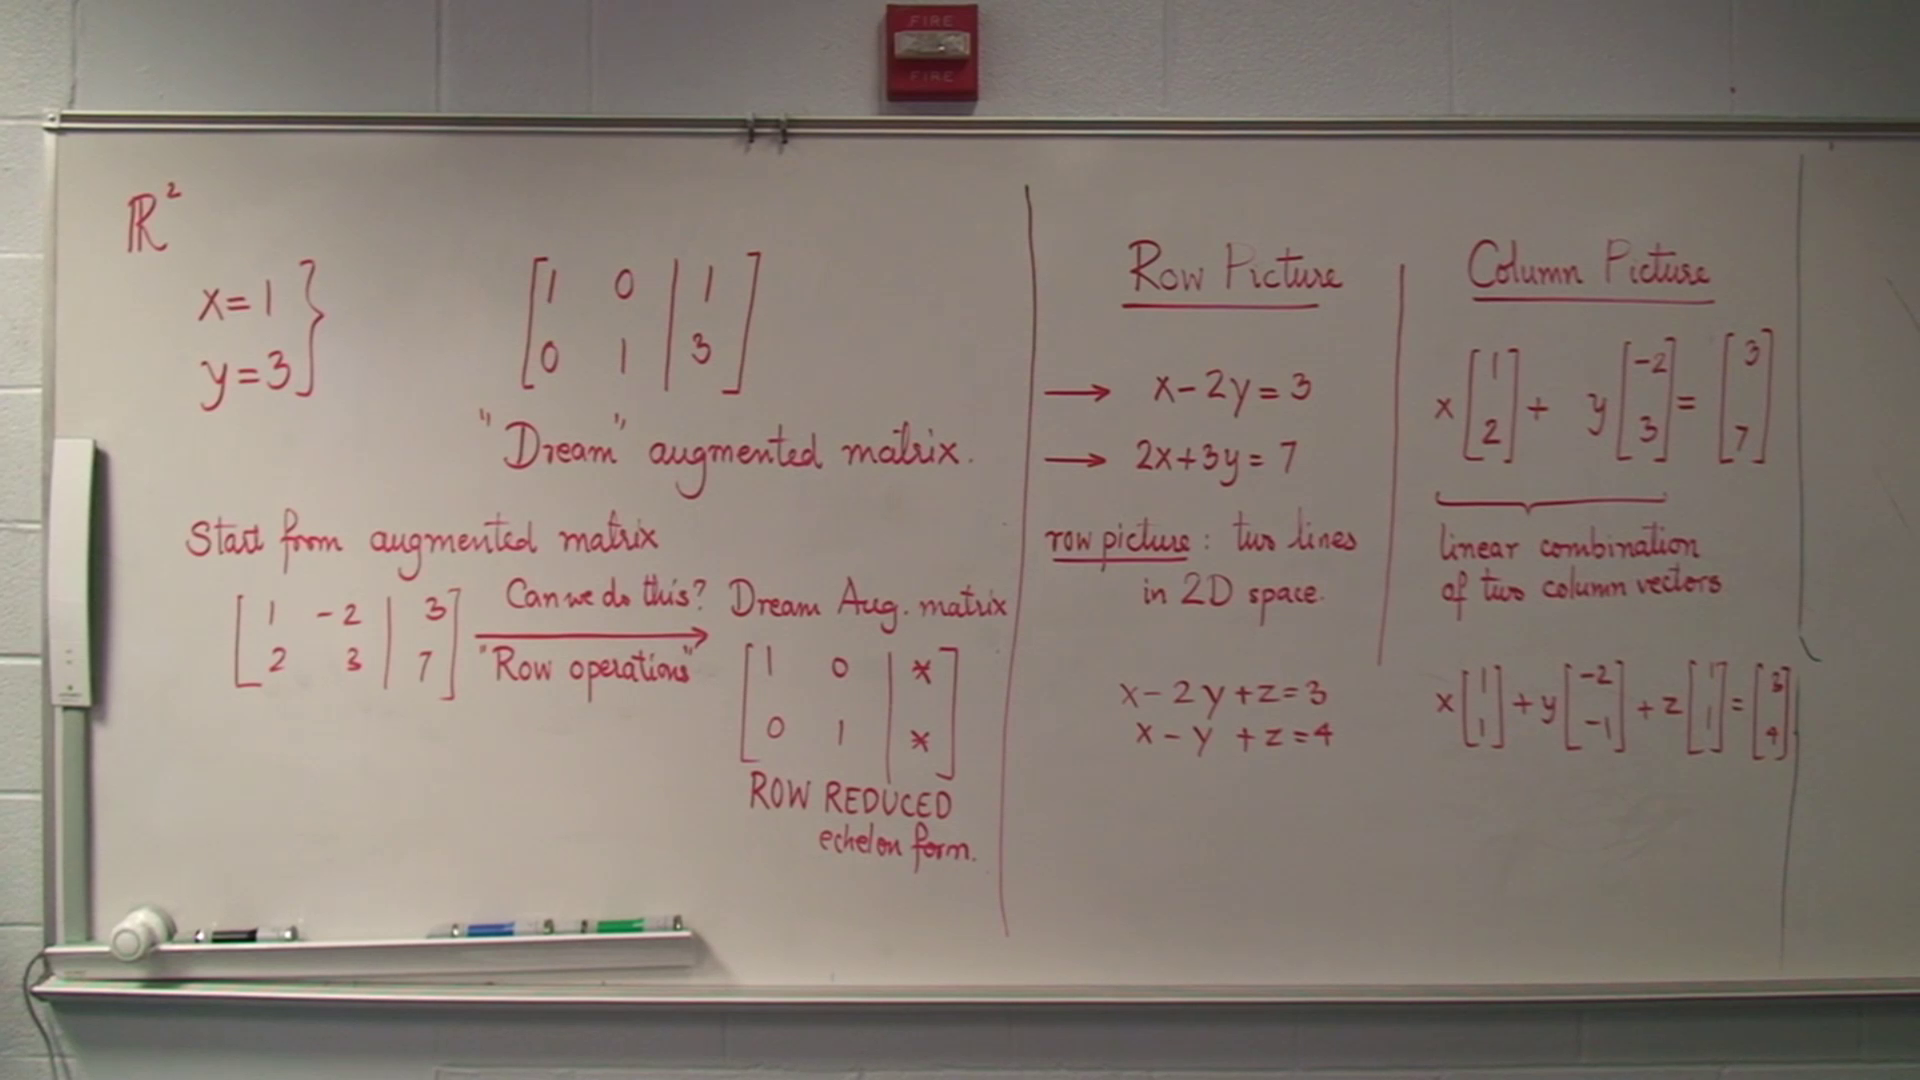 FIRE
FIRE
ℝ²
x=1
y=3
[1 0 | 1]
[0 1 | 3]
"Dream" augmented matrix.
Start from augmented matrix
[1 -2 | 3]
[2 3 | 7]
Can we do this?
"Row operations"
Dream Aug. matrix
[1 0 | *]
[0 1 | *]
ROW REDUCED
echelon form.
Row Picture
→ x-2y=3
→ 2x+3y=7
row picture: two lines
in 2D space.
x-2y+z=3
x-y+z=4
Column Picture
x[1 2] + y[-2 3] = [3 7]
linear combination
of two column vectors
x[1 1] + y[-2 -1] + z[1 1] = [3 4]